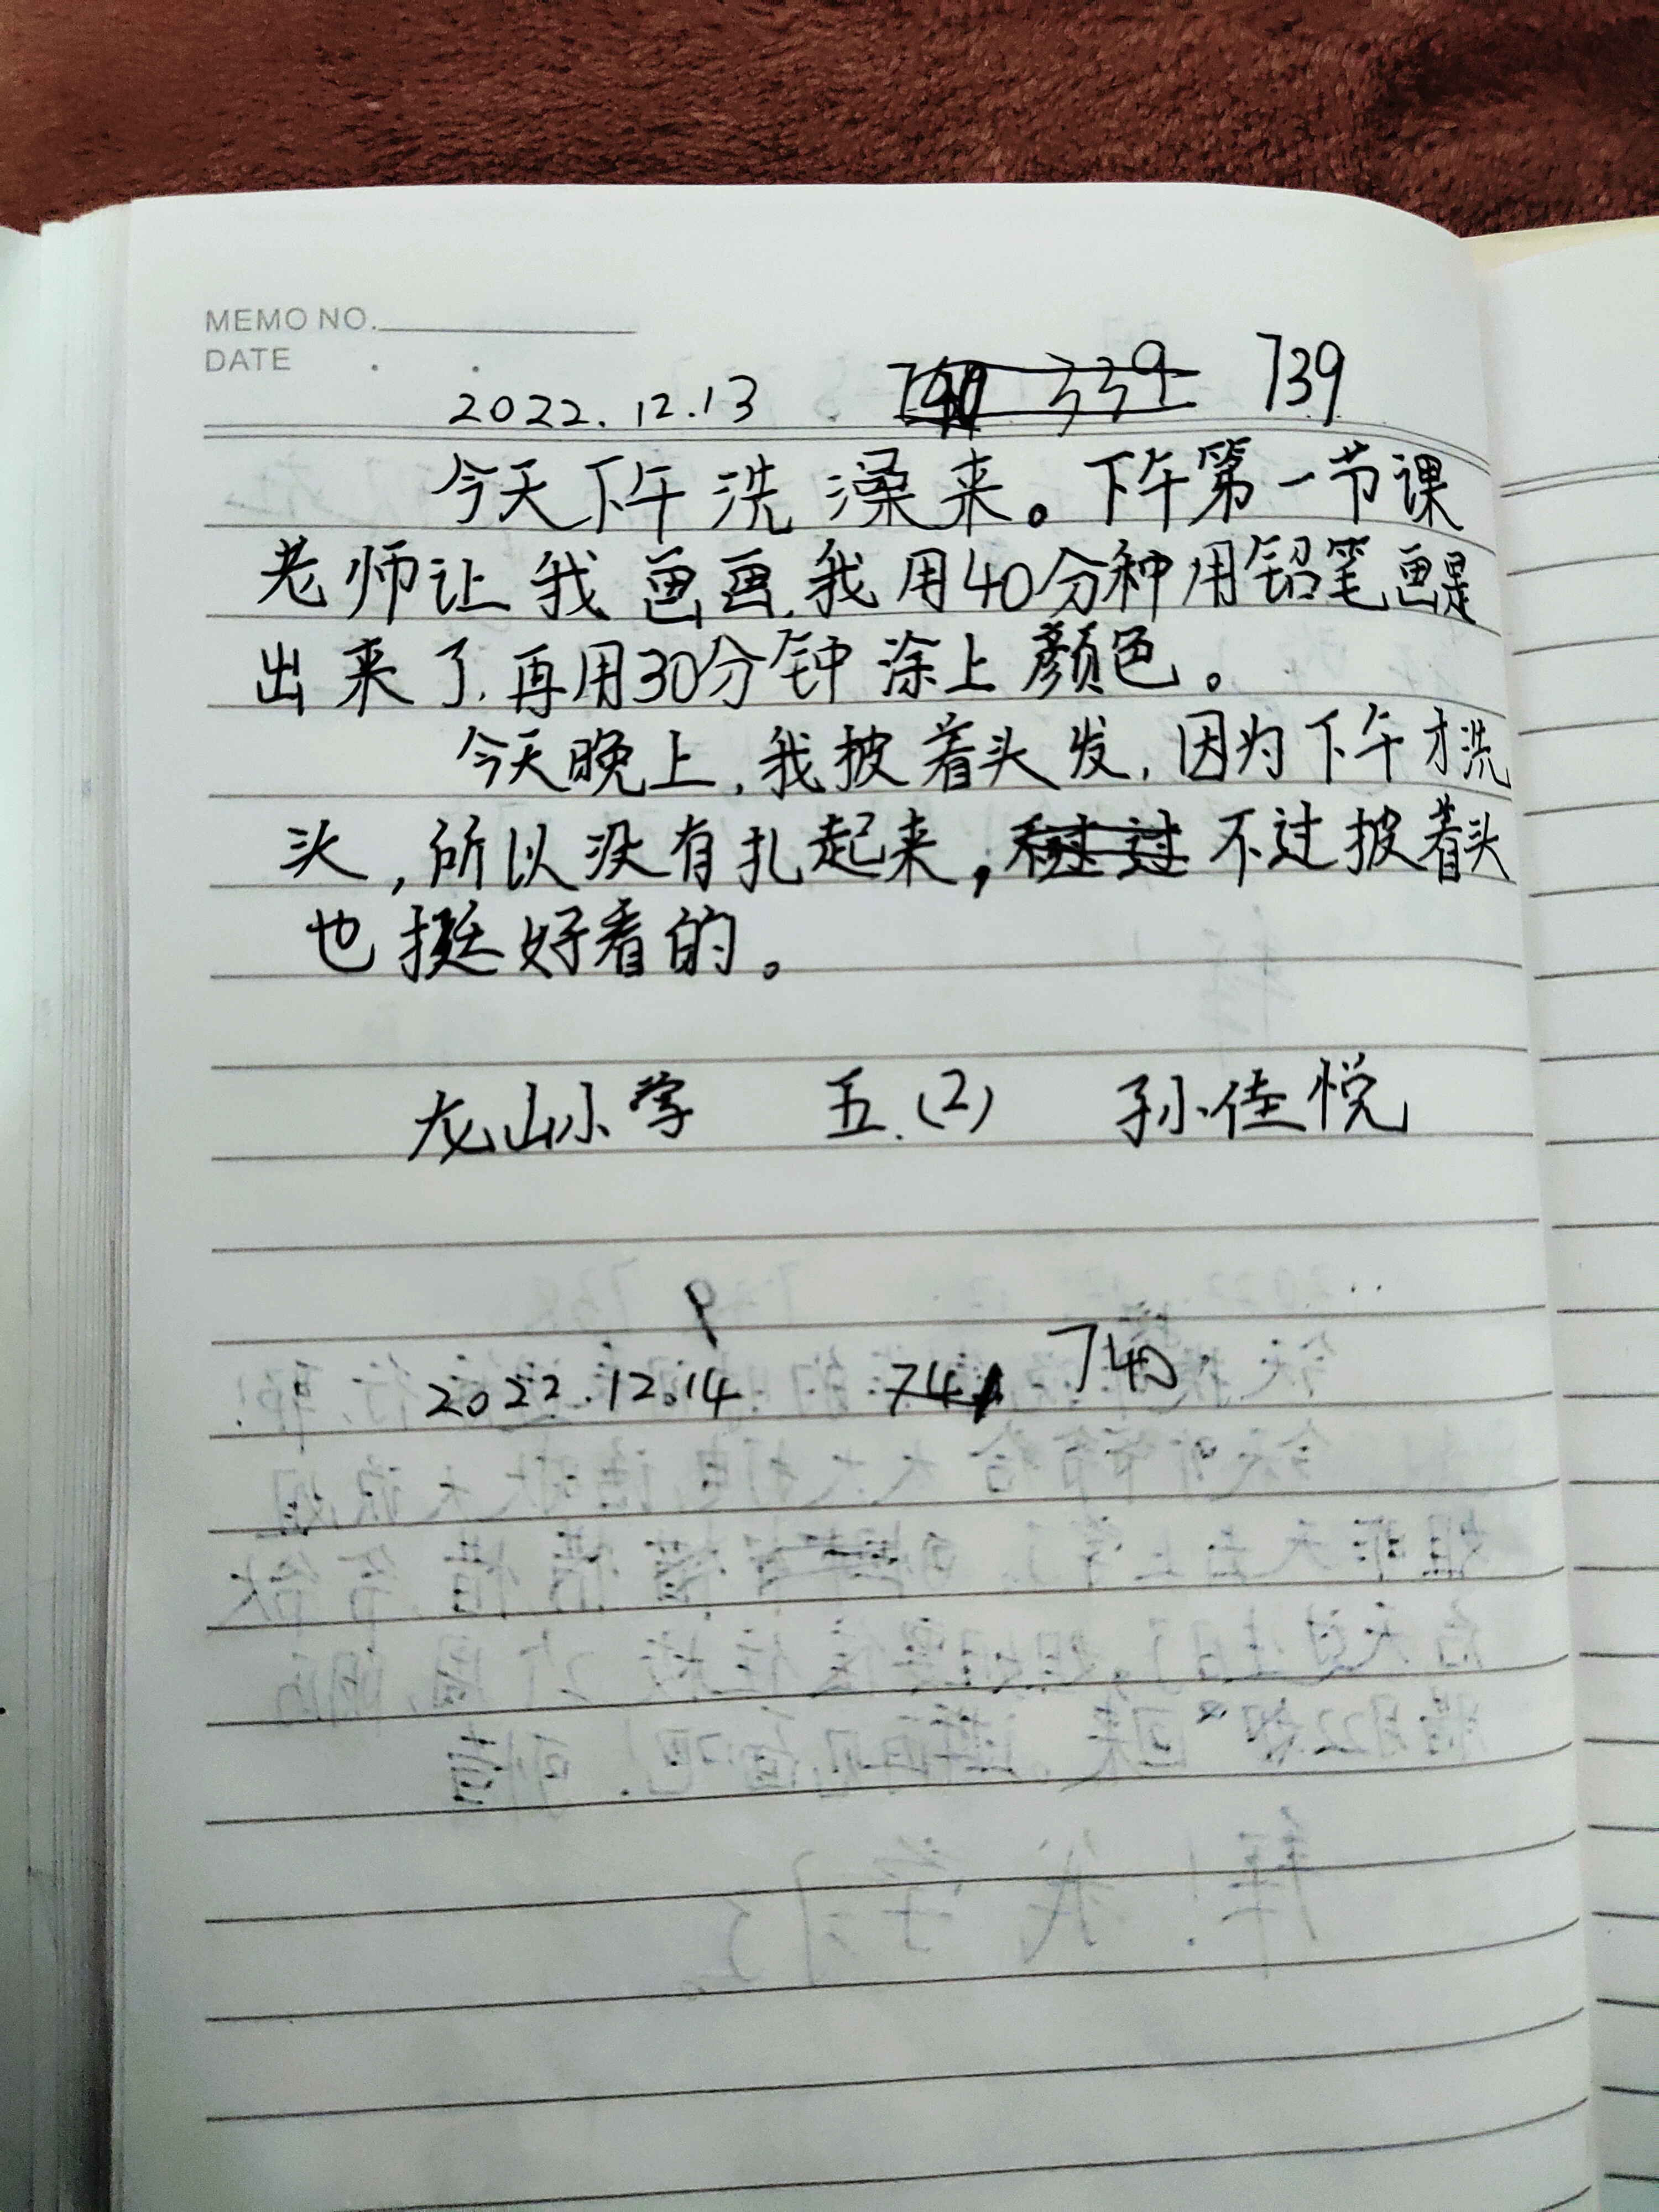 MEMO NO.
DATE . .
2022.12.13 339 739
今天下午洗澡来。下午第一节课
老师让我画画,我用40分种用铅笔画是
出来了,再用30分钟涂上颜色。
今天晚上,我披着头发,因为下午才洗
头,所以没有扎起来,不过披着头
也挺好看的。
龙山小学 五.(2) 孙佳悦
2022.12.14 741 740